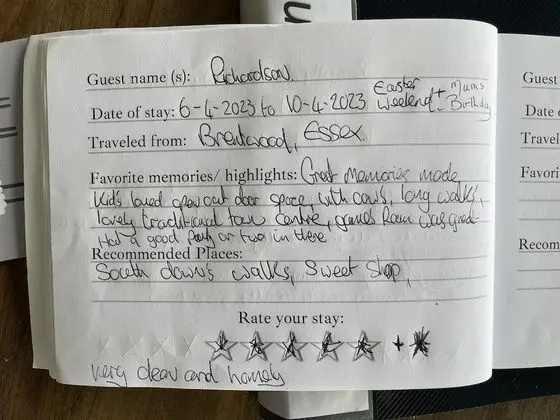 Guest name (s): Richardson
Easter Weekend + Mum's Birthday
Date of stay: 6-4-2023 to 10-4-2023
Traveled from: Brentwood, Essex
Favorite memories/ highlights: Great Memories made
Kids loved open out door space, with cows, long walks,
lovely traditional town centre, games Room was great
Had a good party or two in there
Recommended Places:
South down's walks, Sweet Shop,
Rate your stay:
very clean and homely
Guest
Date
Travel
Favori
Recom